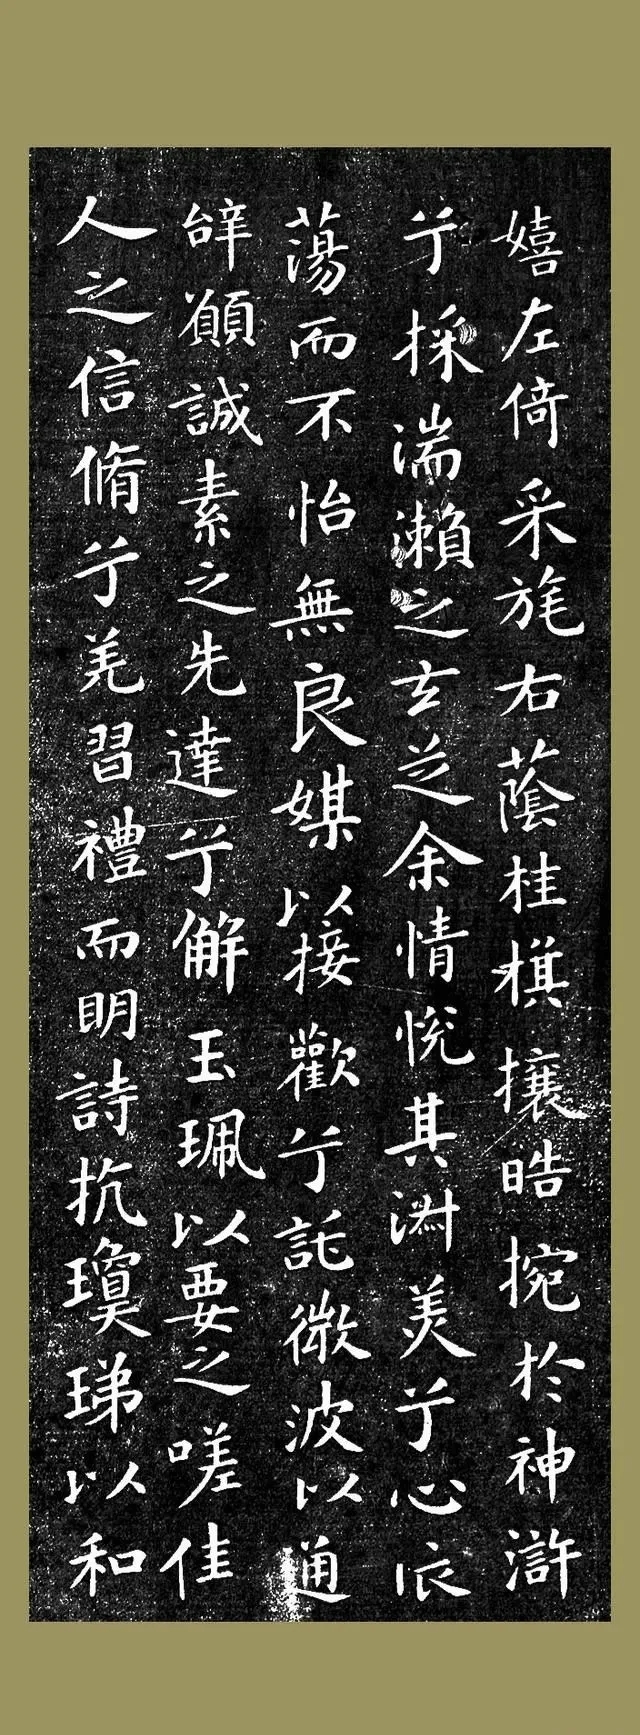 嬉左倚采旄右蔭桂棋攘皓捥於神滸
兮採湍瀨之玄芝余情悅其淋美兮心依
蕩而不怡無良媒以接歡兮託微波以通
辭願誠素之先達兮解玉珮以要之嗟佳
人之信脩兮羌習禮而明詩抗瓊珶以和